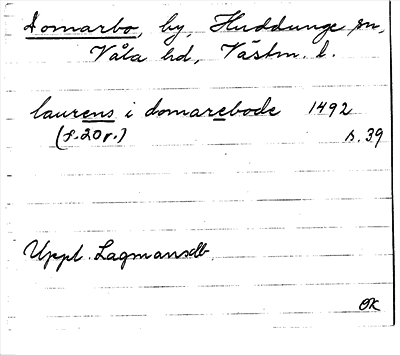 Domarbo, by, Huddunge sn,
Våla hd, Västm. l.
laurens i domarebode 1492
(f. 20 r.) s. 39
Uppl. Lagmansdb.
OK